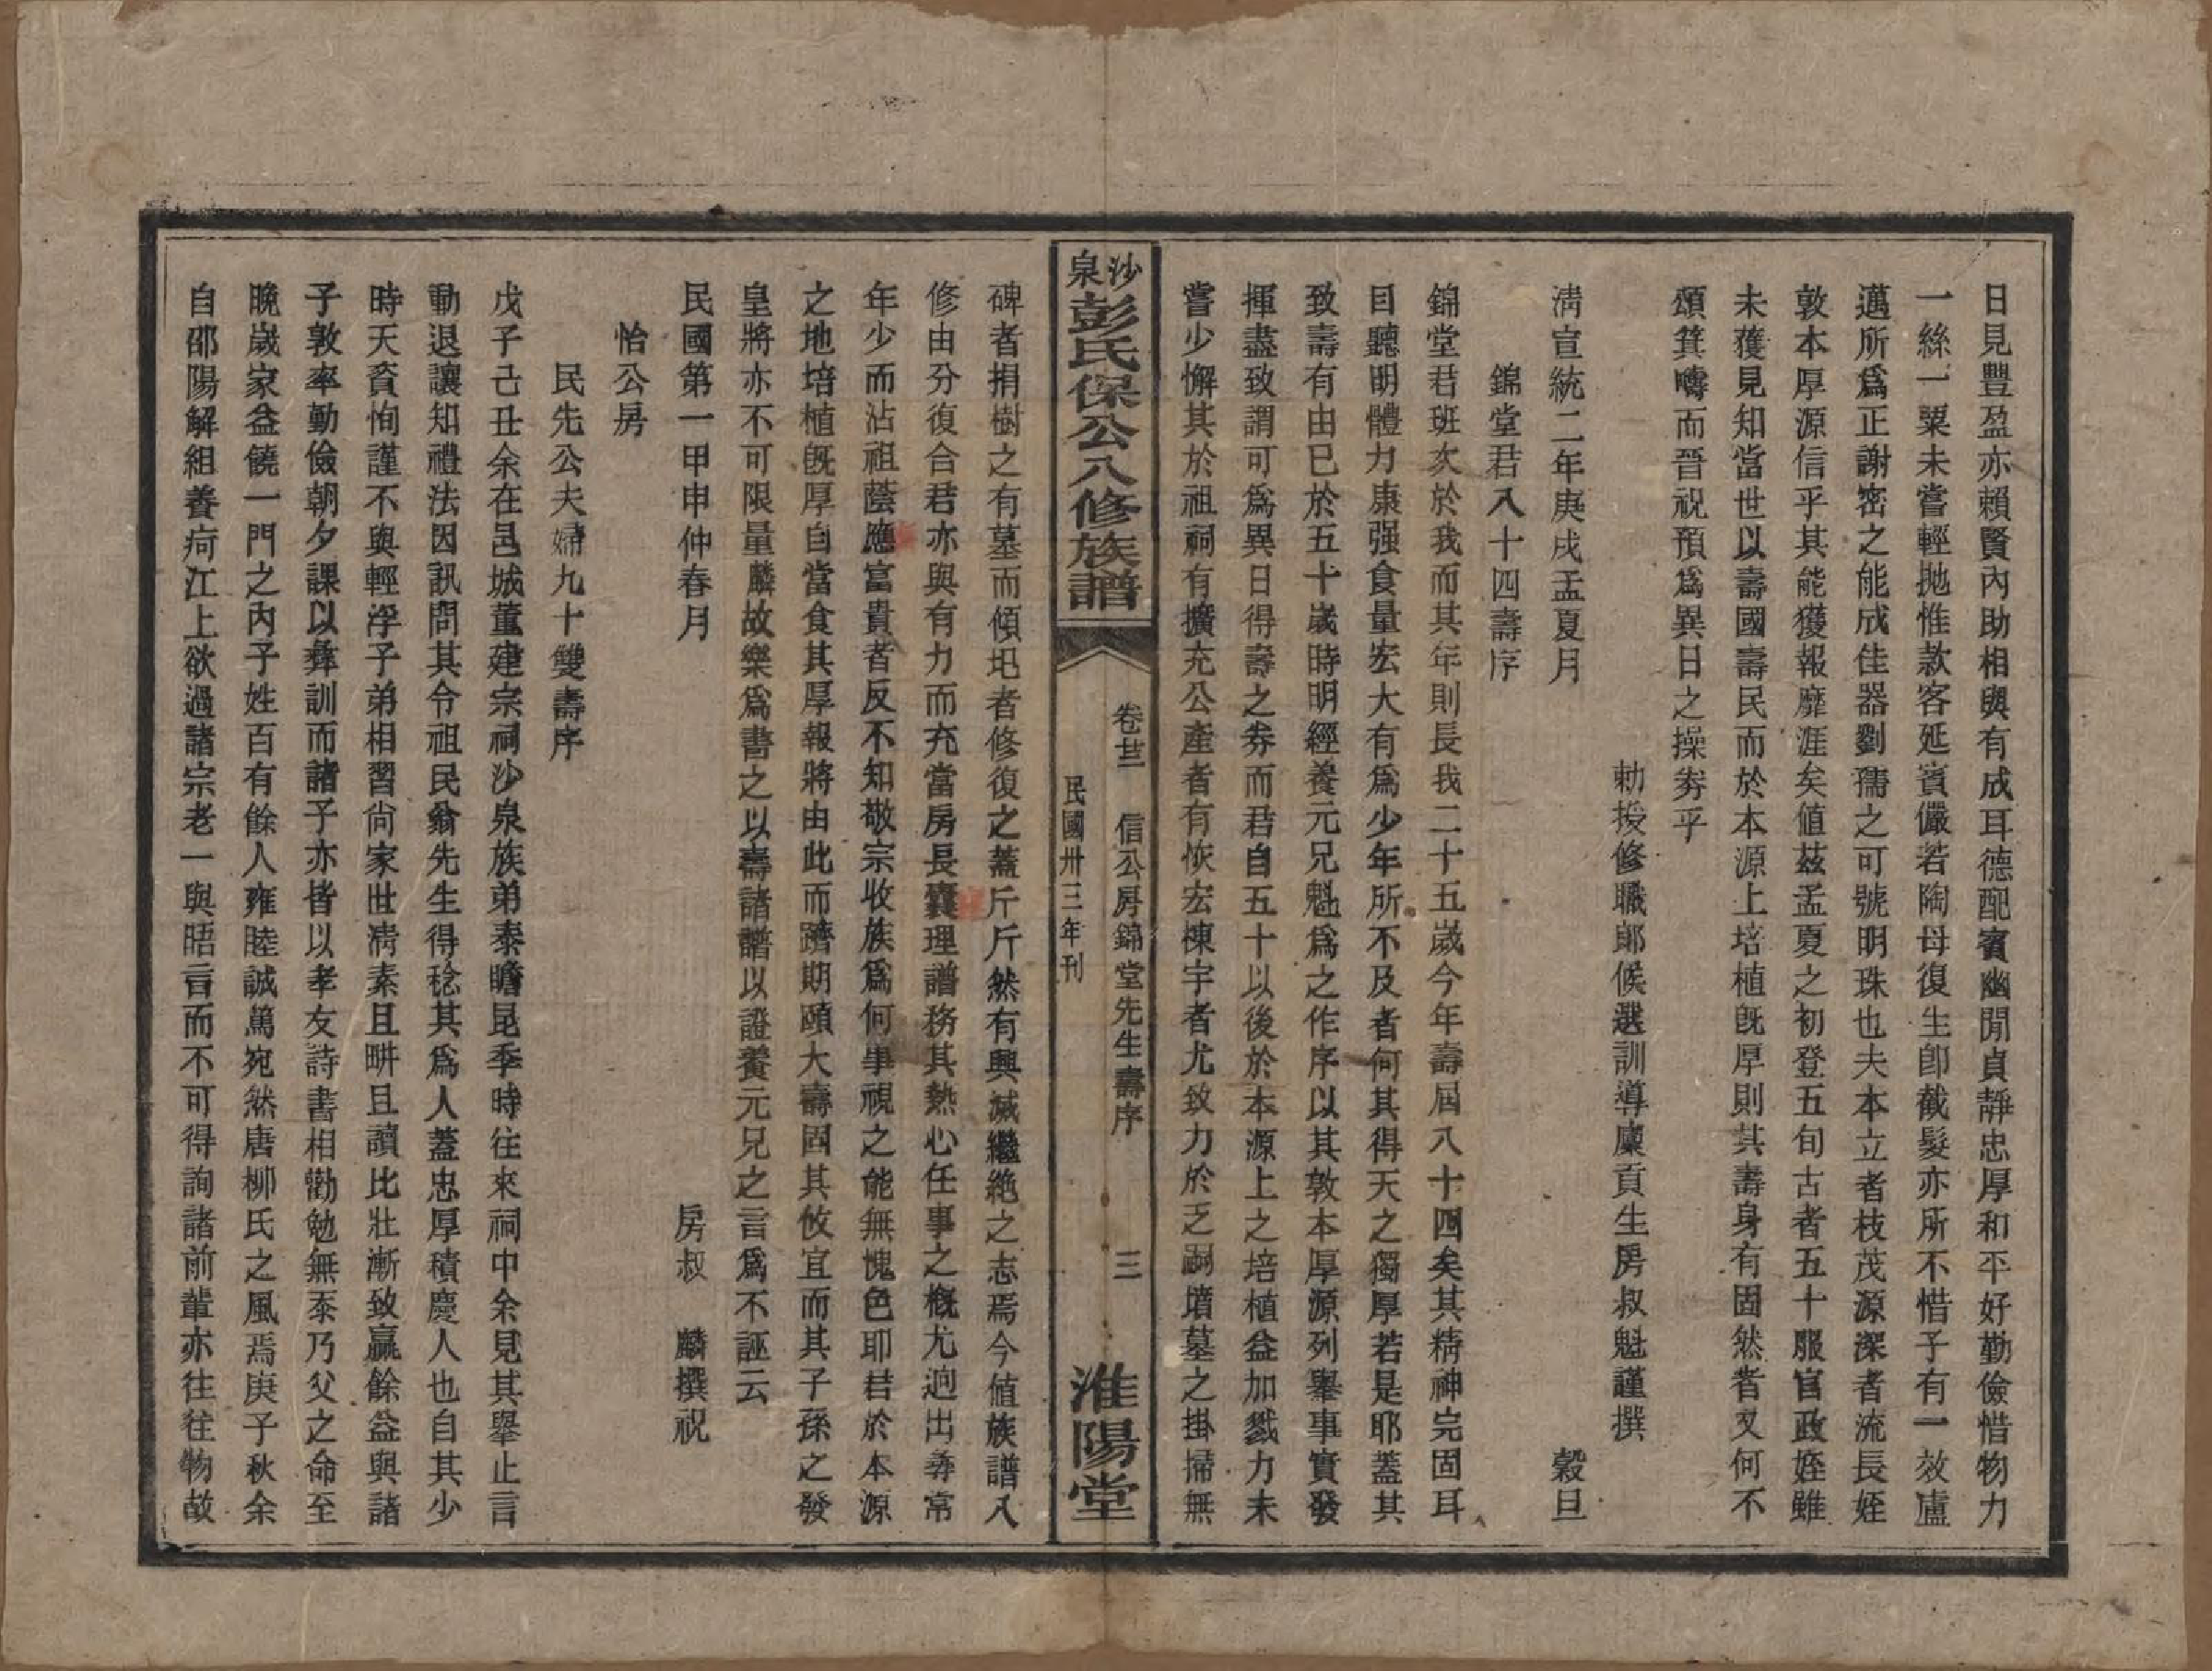 日見豐盈亦賴賢內助相與有成耳德配賓幽閒貞靜忠厚和平好勤儉惜物力
一絲一粟未嘗輕拋惟款客延賓儼若陶母復生卽截髮亦所不惜子有一效盧
邁所爲正謝密之能成佳器劉孺之可號明珠也夫本立者枝茂源深者流長姪
敦本厚源信乎其能獲報靡涯矣値茲孟夏之初登五旬古者五十服官政姪雖
未獲見知當世以壽國壽民而於本源上培植旣厚則其壽身有固然者又何不
頌箕疇而晉祝預爲異日之操券乎
勅授修職郞候選訓導廩貢生房叔魁謹撰
淸宣統二年庚戌孟夏月 穀旦
錦堂君八十四壽序
錦堂君班次於我而其年則長我二十五歲今年壽屆八十四矣其精神完固耳
目聽明體力康强食量宏大有爲少年所不及者何其得天之獨厚若是耶蓋其
致壽有由已於五十歲時明經養元兄魁爲之作序以其敦本厚源列舉事實發
揮盡致謂可爲異日得壽之券而君自五十以後於本源上之培植益加戮力未
嘗少懈其於祖祠有擴充公產者有恢宏棟宇者尤致力於乏嗣墳墓之掛掃無
沙泉彭氏保公八修族譜 卷廿二 信公房錦堂先生壽序 三 民國卅三年刊 淮陽堂
碑者捐樹之有墓而傾圮者修復之蓋斤斤然有興滅繼絶之志焉今値族譜八
修由分復合君亦與有力而充當房長襄理譜務其熱心任事之槪尤逈出尋常
年少而沾祖蔭應富貴者反不知敬宗收族爲何事視之能無愧色耶君於本源
之地培植旣厚自當食其厚報將由此而躋期頤大壽固其攸宜而其子孫之發
皇將亦不可限量麟故樂爲書之以壽諸譜以證養元兄之言爲不誣云
民國第一甲申仲春月 房叔 麟撰祝
怡公房
民先公夫婦九十雙壽序
戊子己丑余在邑城董建宗祠沙泉族弟泰瞻昆季時往來祠中余見其舉止言
動退讓知禮法因訊問其令祖民翁先生得稔其爲人蓋忠厚積慶人也自其少
時天資恂謹不與輕浮子弟相習尙家世淸素且畊且讀比壯漸致贏餘益與諸
子敦率勤儉朝夕課以彝訓而諸子亦皆以孝友詩書相勸勉無忝乃父之命至
晚歲家益饒一門之內子姓百有餘人雍睦誠篤宛然唐柳氏之風焉庚子秋余
自邵陽解組養疴江上欲過諸宗老一與晤言而不可得詢諸前輩亦往往物故